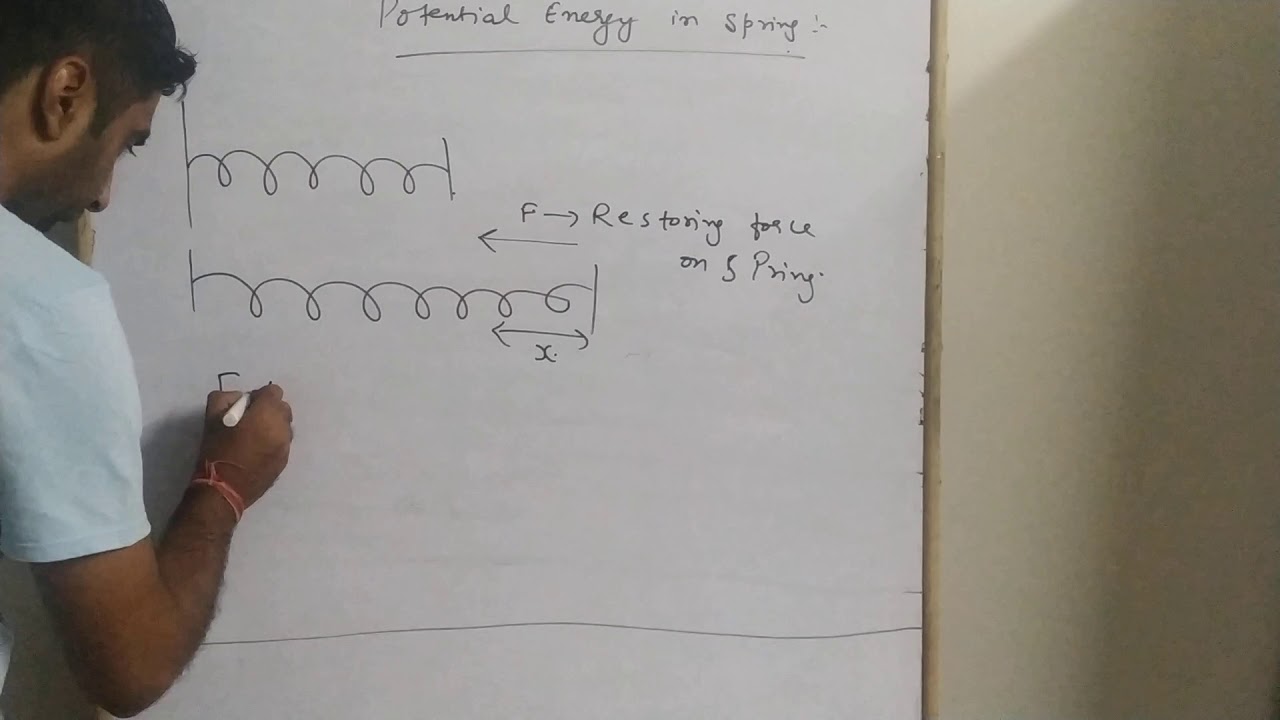 Potential Energy in Spring :-
F → Restoring force
on SPring.
x.
F